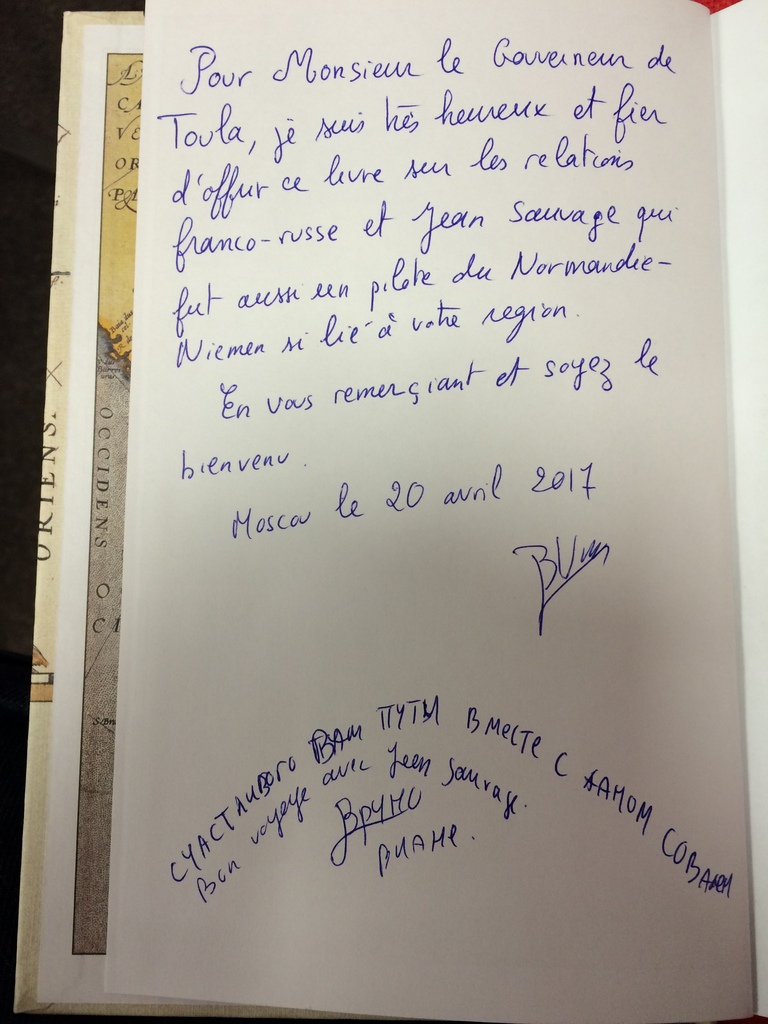 Pour Monsieur le Gouverneur de
Toula, je suis très heureux et fier
d'offrir ce livre sur les relations
franco-russe et Jean Sauvage qui
fut aussi un pilote du Normandie-
Niemen si lié à votre region.
En vous remerçiant et soyez le
bienvenu.
Moscou le 20 avril 2017
СЧАСТЛИВОГО ВАМ ПУТЫ ВМЕСТЕ С ЖАНОМ
Bon voyage avec Jean Sauvage.
Бруно
Виане.
ORIENS.
OCCIDENS